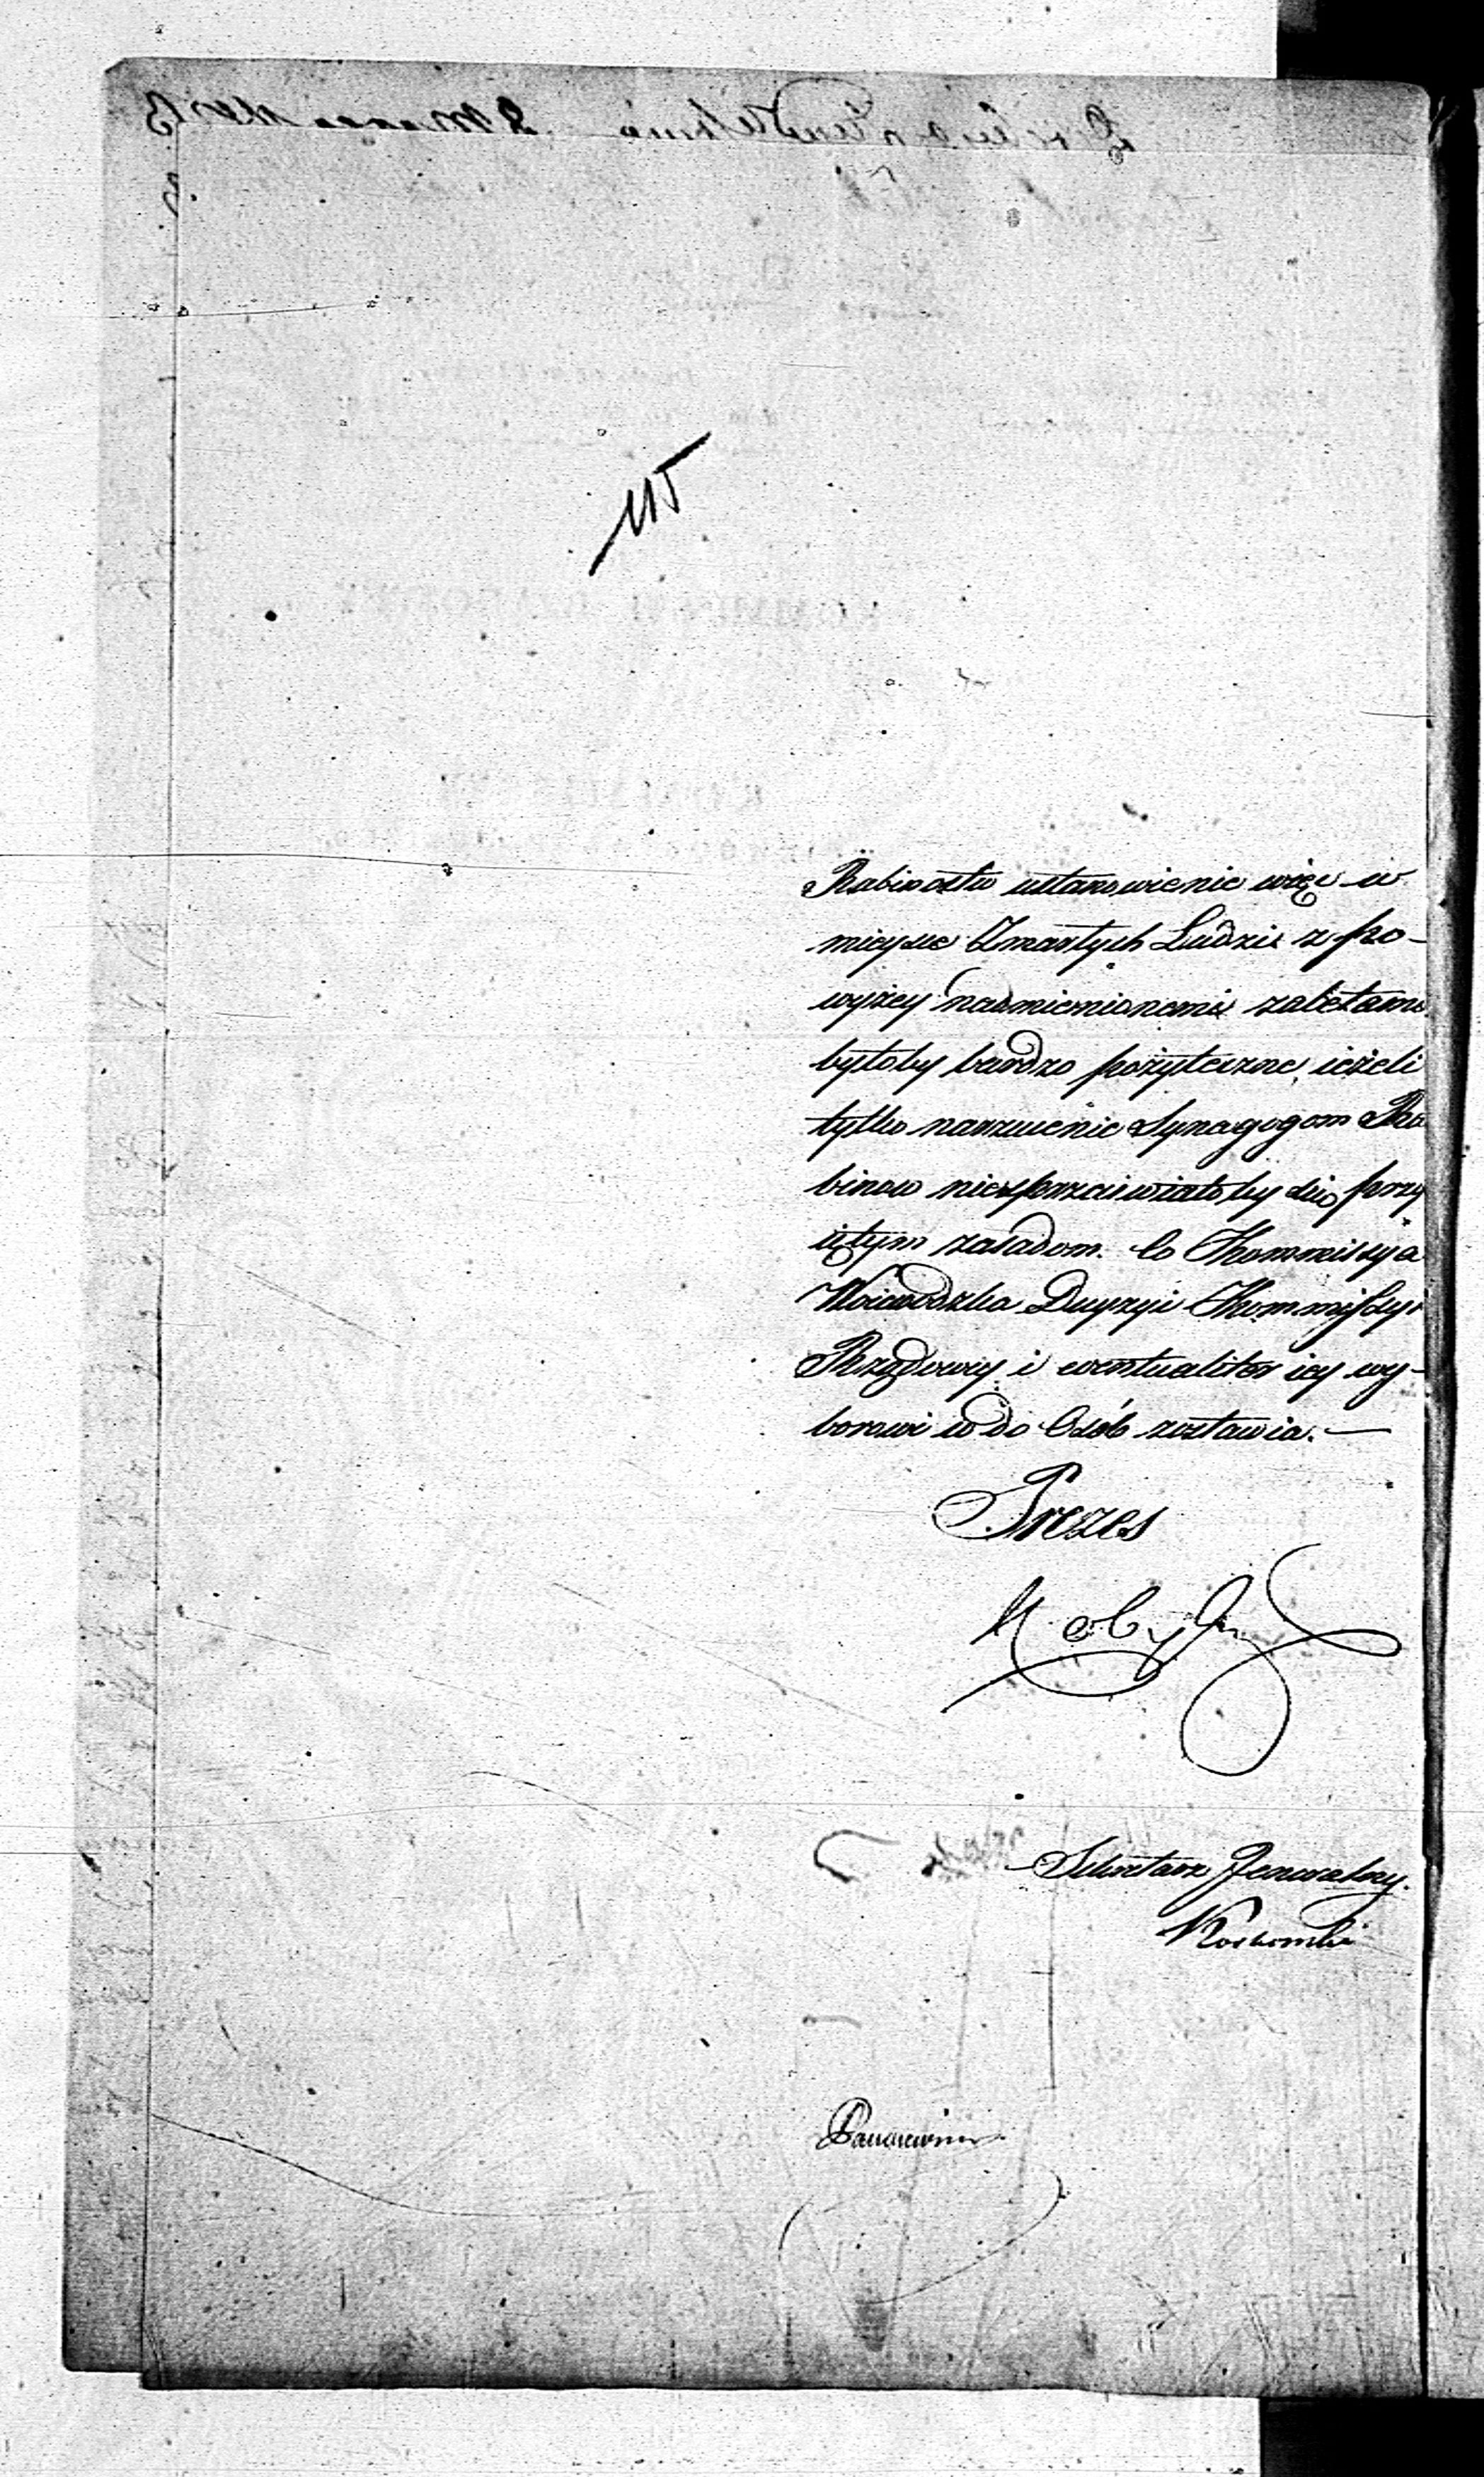 115
Rabinostw ustanowienie więc w
mieysce Zmarłych Ludzi z po-
wyżey nadmienionemi zaletami
byłoby bardzo pożyteczne, ieżeli
tylko narzucenie Synagogom Ra
binow niesprzeciwiałoby się przy
iętym zasadom. Co Kommissya
Woiewodzka Decyzyi Kommissyi
Rządowey i eventualiter iey wy-
borowi co do Osób zostawia. —
Prezes
Sekretarz Jeneralny.